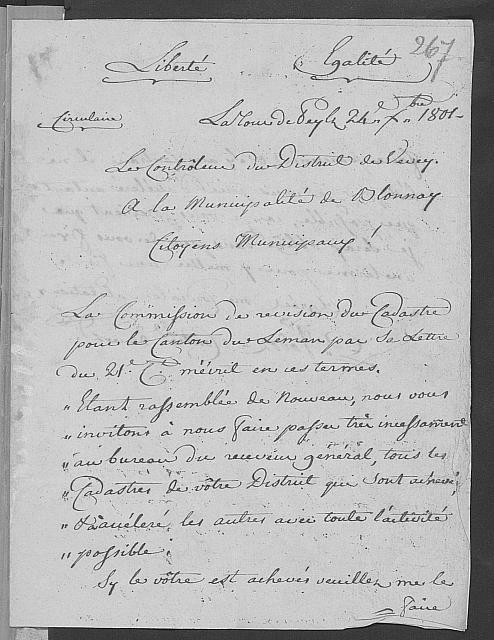 267
Liberté Egalité
Circulaire La Tour de Peylz 24e 7bre 1801
Le Contrôleur du District de Vevey.
A la Municipalité de Blonnay
Citoyens Municipaux!
La Commission de revision du Cadastre
pour le Canton du Leman par Sa Lettre
du 21e Ct m'écrit en ces termes.
" Etant rassemblée de Nouveau, nous vous
" invitons à nous faire passer très incessament
" au bureau du receveur général, tous les
" Cadastrés de vôtre District qui sont achevé,
" & accéleré les autres avec toute l'activité
" possible.
Sy le vôtre est achevés veuillez me le
faire